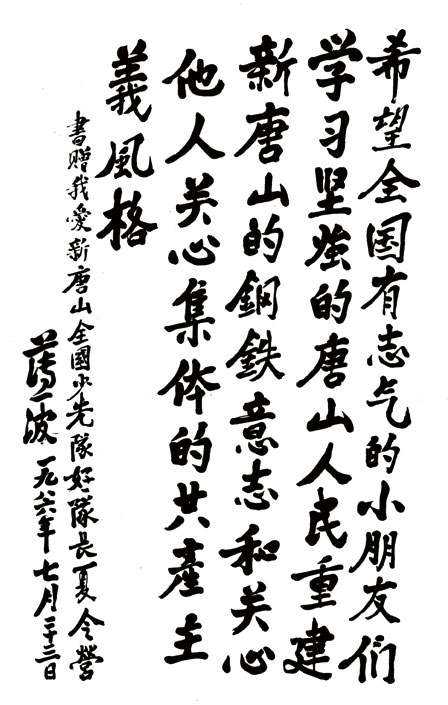 希望全国有志气的小朋友们
学习坚强的唐山人民重建
新唐山的鋼鉄意志和关心
他人关心集体的共產主
義風格
書贈我愛新唐山全國少先隊好隊長夏令營
薄一波 一九八六年七月二十三日